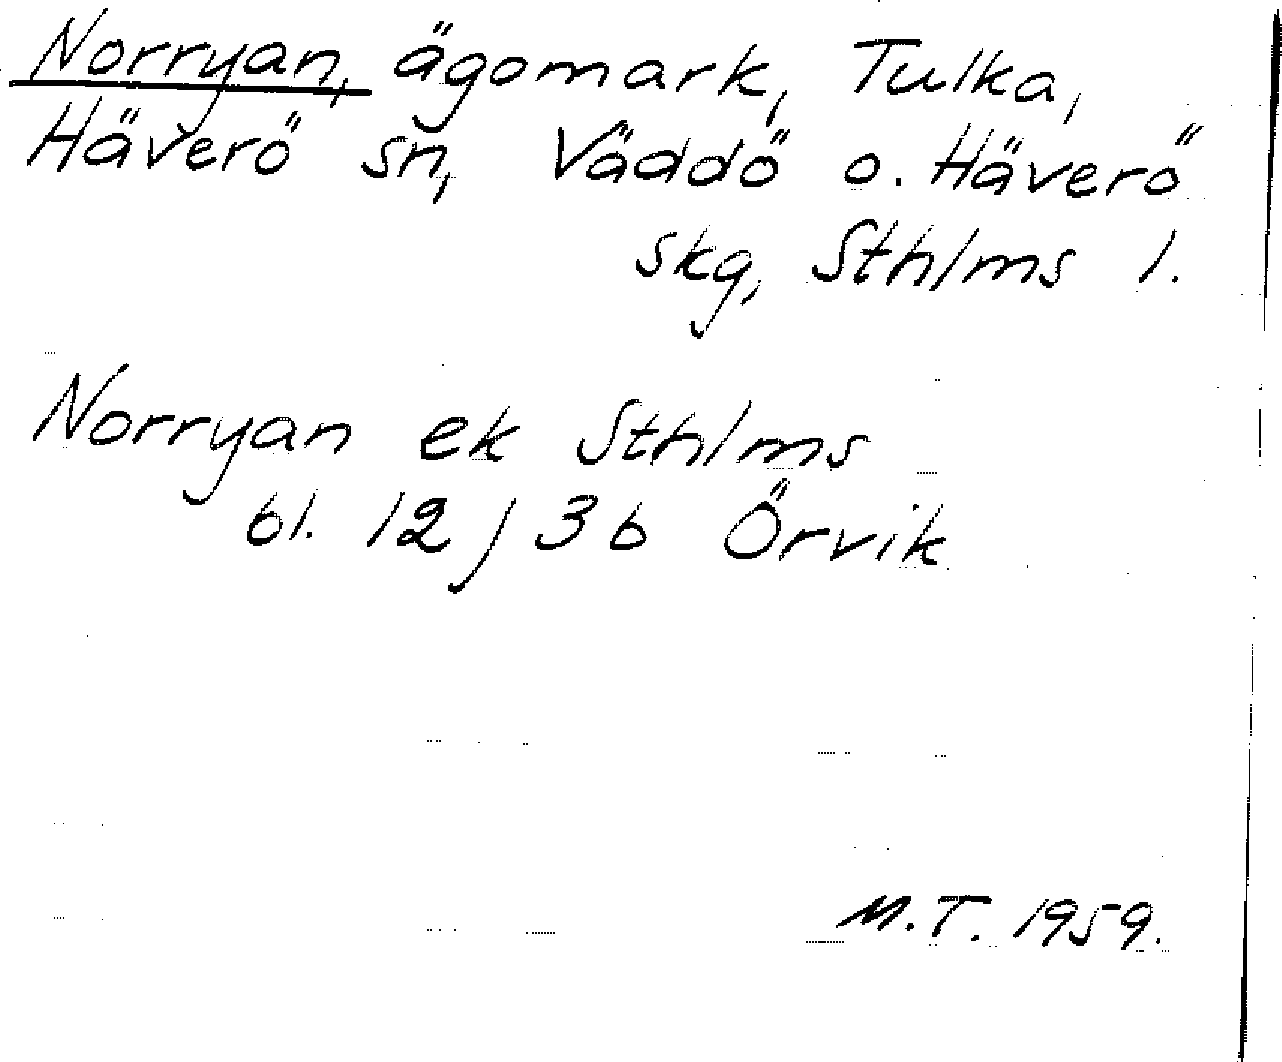 Norryan, ägomark, Tulka,
Häverö sn, Väddö o. Häverö
skg, Sthlms l.
Norryan ek Sthlms
bl. 12 j 3b Örvik
M.T. 1959.